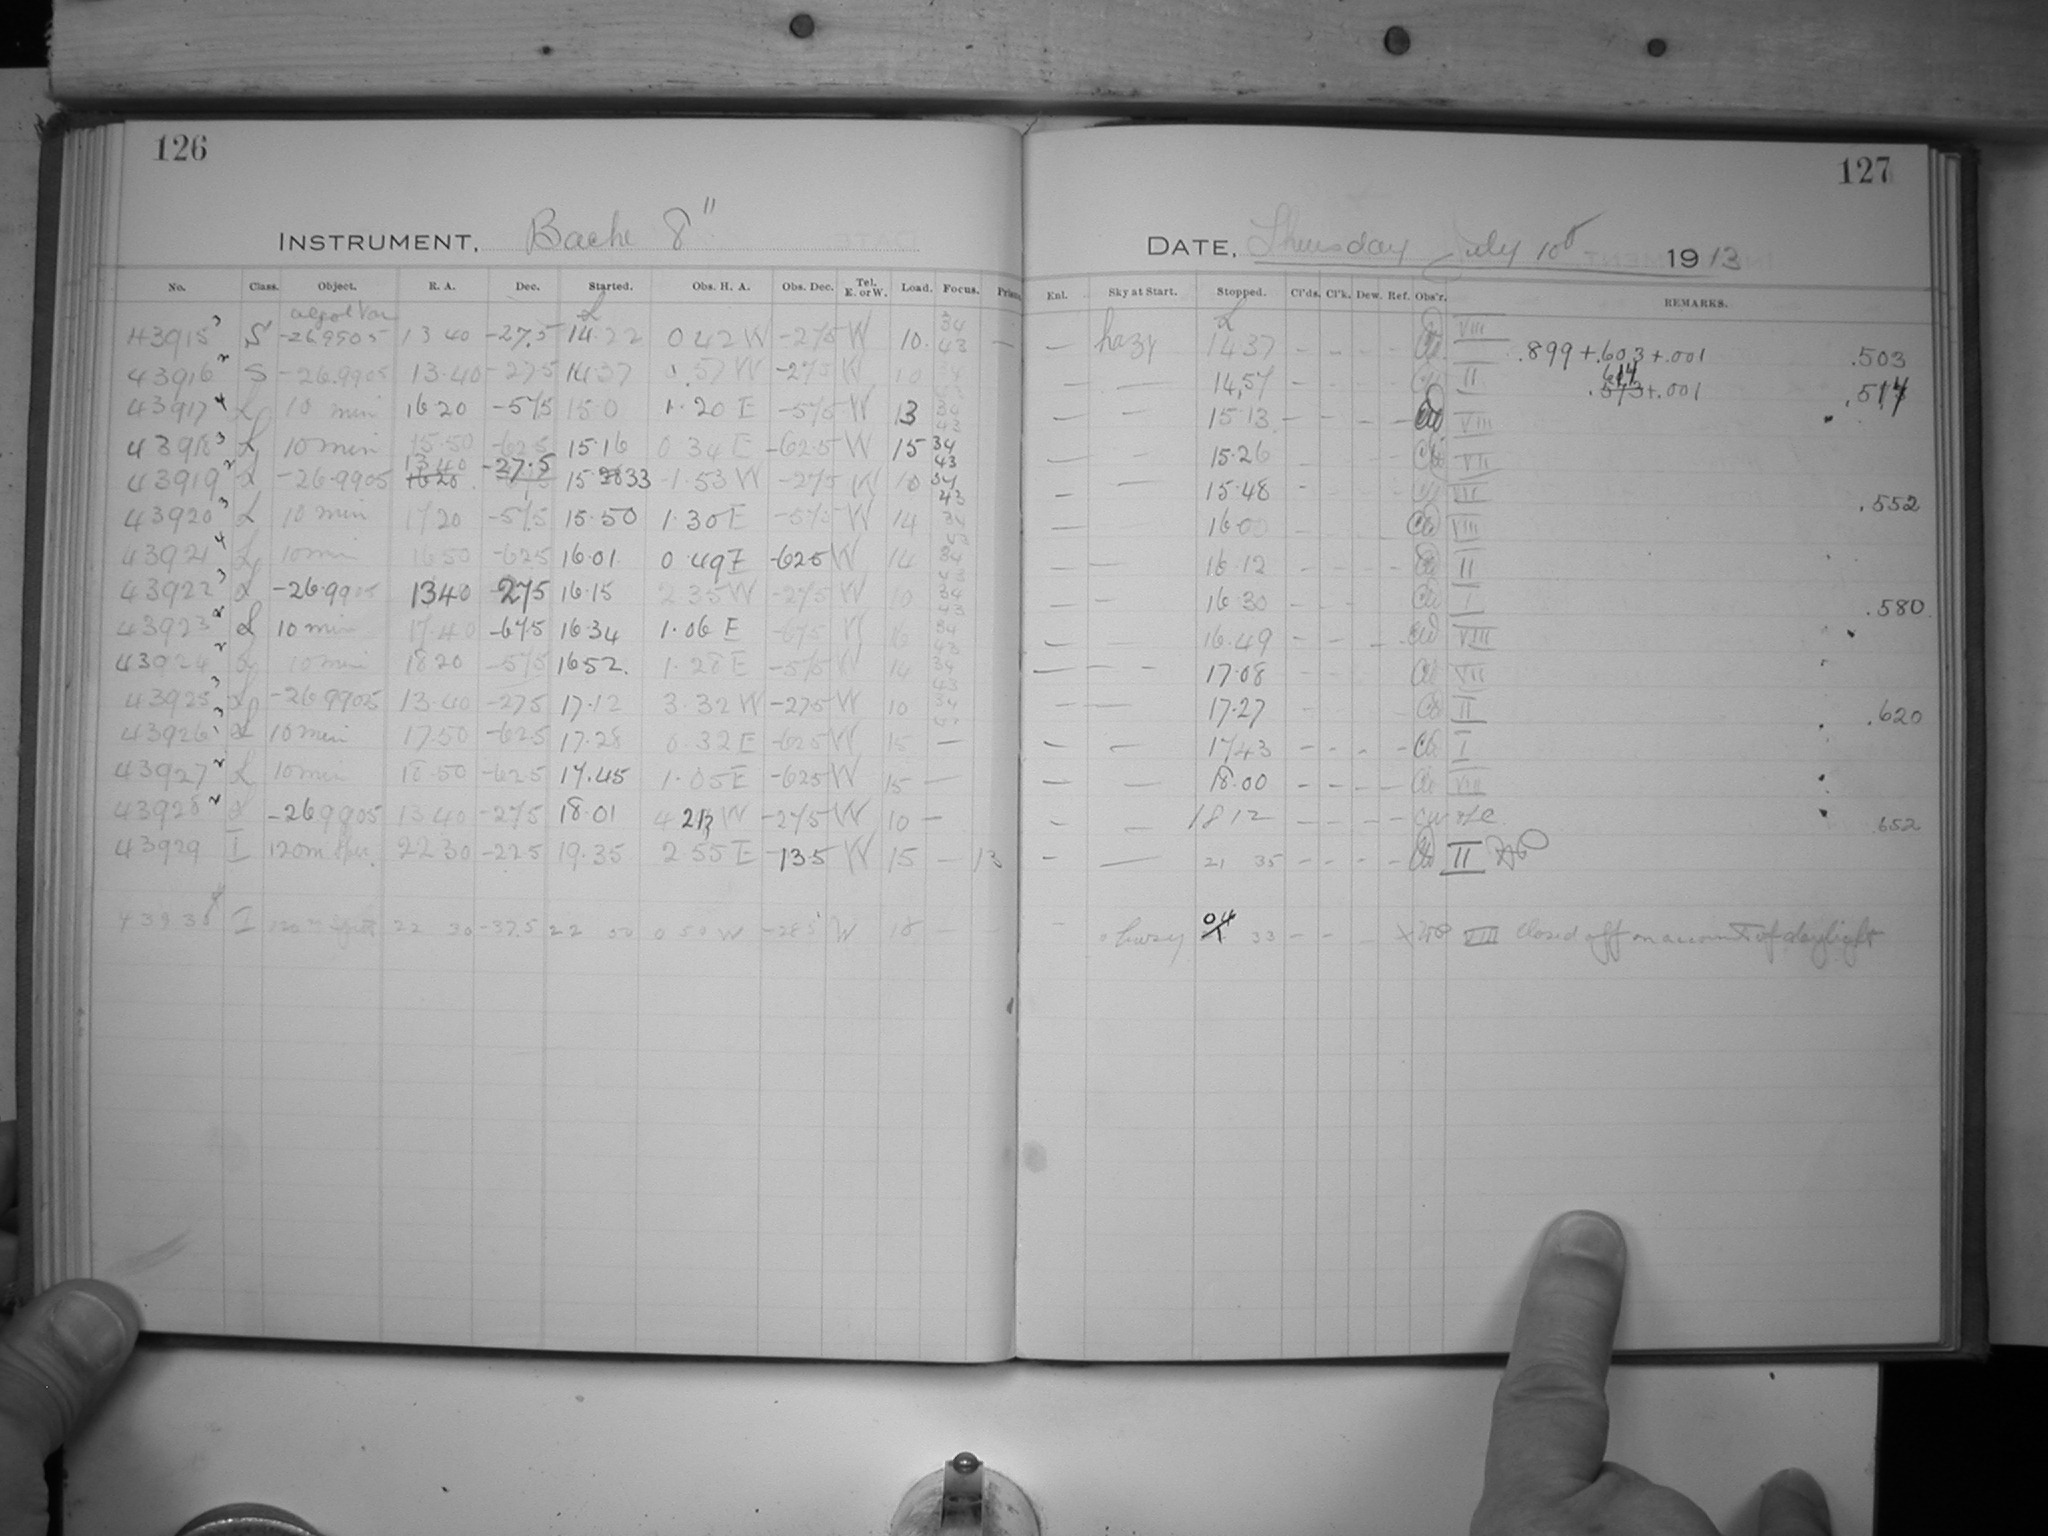 126
INSTRUMENT, Bache 8"
No. Class. Object. R. A. Dec. Started. Obs. H. A. Obs. Dec. Tel. E. or W. Load. Focus.
algol Var
43915 3 S -26.9905 13 40 -27.5 14.22 0 42 W -275 W 10. 34 43 —
43916 2 S -26.9905 13.40 -275 14.37 0.57 W -275 W 10 34
43917 4 L 10 min 16 20 -575 15.0 1.20 E -575 W 13 34 43
43918 3 L 10 min 15.50 -625 15.16 0 34 E -62.5 W 15 34 43
43919 2 L -26.9905 13 40 16 20 -27.5 15 28 33 1.53 W -275 W 10 34 43
43920 3 L 10 min 17 20 -575 15.50 1.30 E -575 W 14 34
43921 4 L 10 min 16 50 -625 16.01 0 49 E -625 W 14 34 43
43922 3 L -26.9905 1340 -275 16.15 2 35 W -275 W 10 34 43
43923 2 L 10 min 17.40 -675 16.34 1.06 E -675 W 16 34 43
43924 2 L 10 min 18 20 -575 16 52. 1.28 E -575 W 14 34 43
43925 3 L -26 9905 13.40 -275 17.12 3.32 W -275 W 10 34
43926 3 L 10 min 17.50 -625 17.28 0.32 E -625 W 15 —
43927 2 L 10 min 18.50 -625 17.45 1.05 E -625 W 15 —
43928 2 L -269905 13 40 -275 18.01 4 21 W -275 W 10 —
43929 I 120m 22 30 -22.5 19.35 2 55 E -135 W 15 — 13
43930 I 120 m 22 30 -37.5 22 00 0 50 W W 18 —
127
DATE, Thursday July 10th 1913
Enl. Sky at Start. Stopped. Cl'ds. Cl'k. Dew. Ref. Obs'r. REMARKS.
— hazy 14 37 - - - - VIII .899 + .603 + .001 .503
— — 14,57 - - - - II .614 .573 + .001 .514
— — 15.13 - - - - VIII
— — 15.26 - - - - VII
— — 15.48 - - - - VII .552
— 16 00 - - - - VIII
— — 16.12 - - - - II
— — 16 30 - - - - I .580
— — 16.49 - - - - VIII
— — 17.08 - - - - VII
— — 17.27 - - - - II .620
— — 17 43 - - - - I
— — 18.00 - - - - VII
— — 18 12 - - - - .652
— — 21 35 - - - - II
— hazy 04 33 - - - VIII Closed off on account of daylight